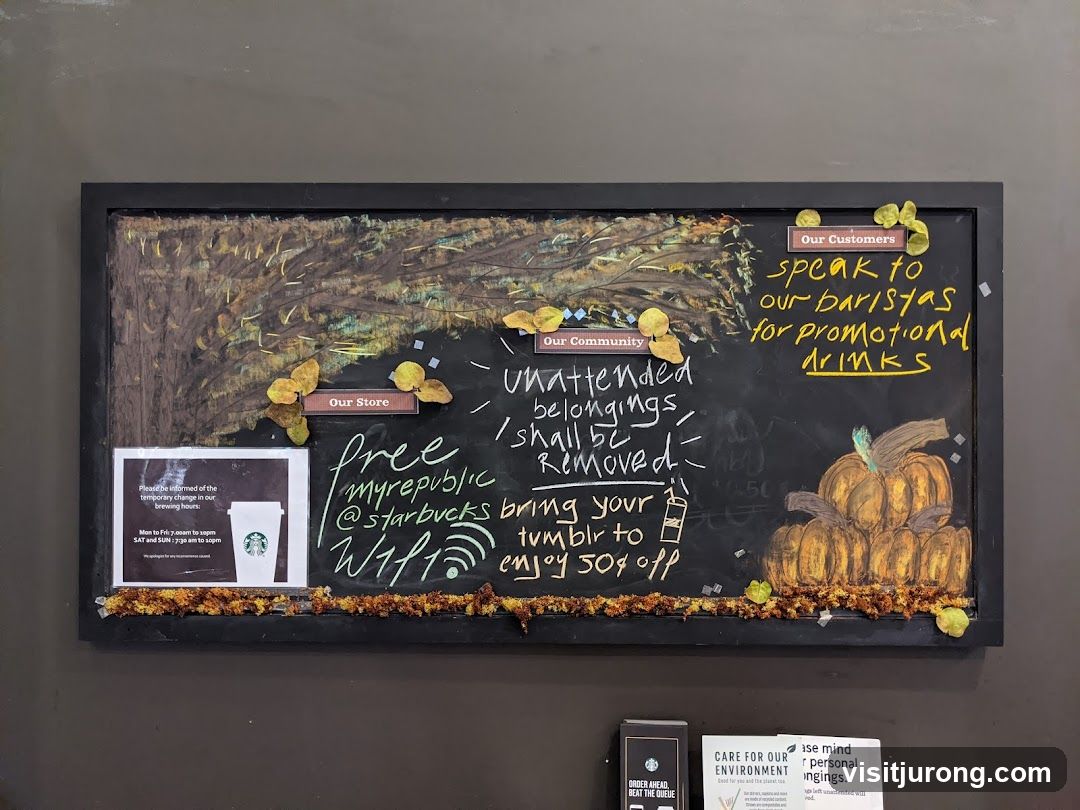 Our Customers
speak to
our baristas
for promotional
drinks
Our Community
unattended
belongings
shall be
REMOVED
bring your
tumblr to
enjoy 50¢ off
Our Store
free
myrepublic
@starbucks
Wifi
Please be informed of the
temporary change in our
brewing hours:
Mon to Fri: 7.00am to 10pm
SAT and SUN : 7:30 am to 10pm
We apologise for any inconvenience caused
ORDER AHEAD,
BEAT THE QUEUE
CARE FOR OUR
ENVIRONMENT
Good for you and the planet too.
ase mind
r personal
ongings.
ngs left unattended will
visitjurong.com